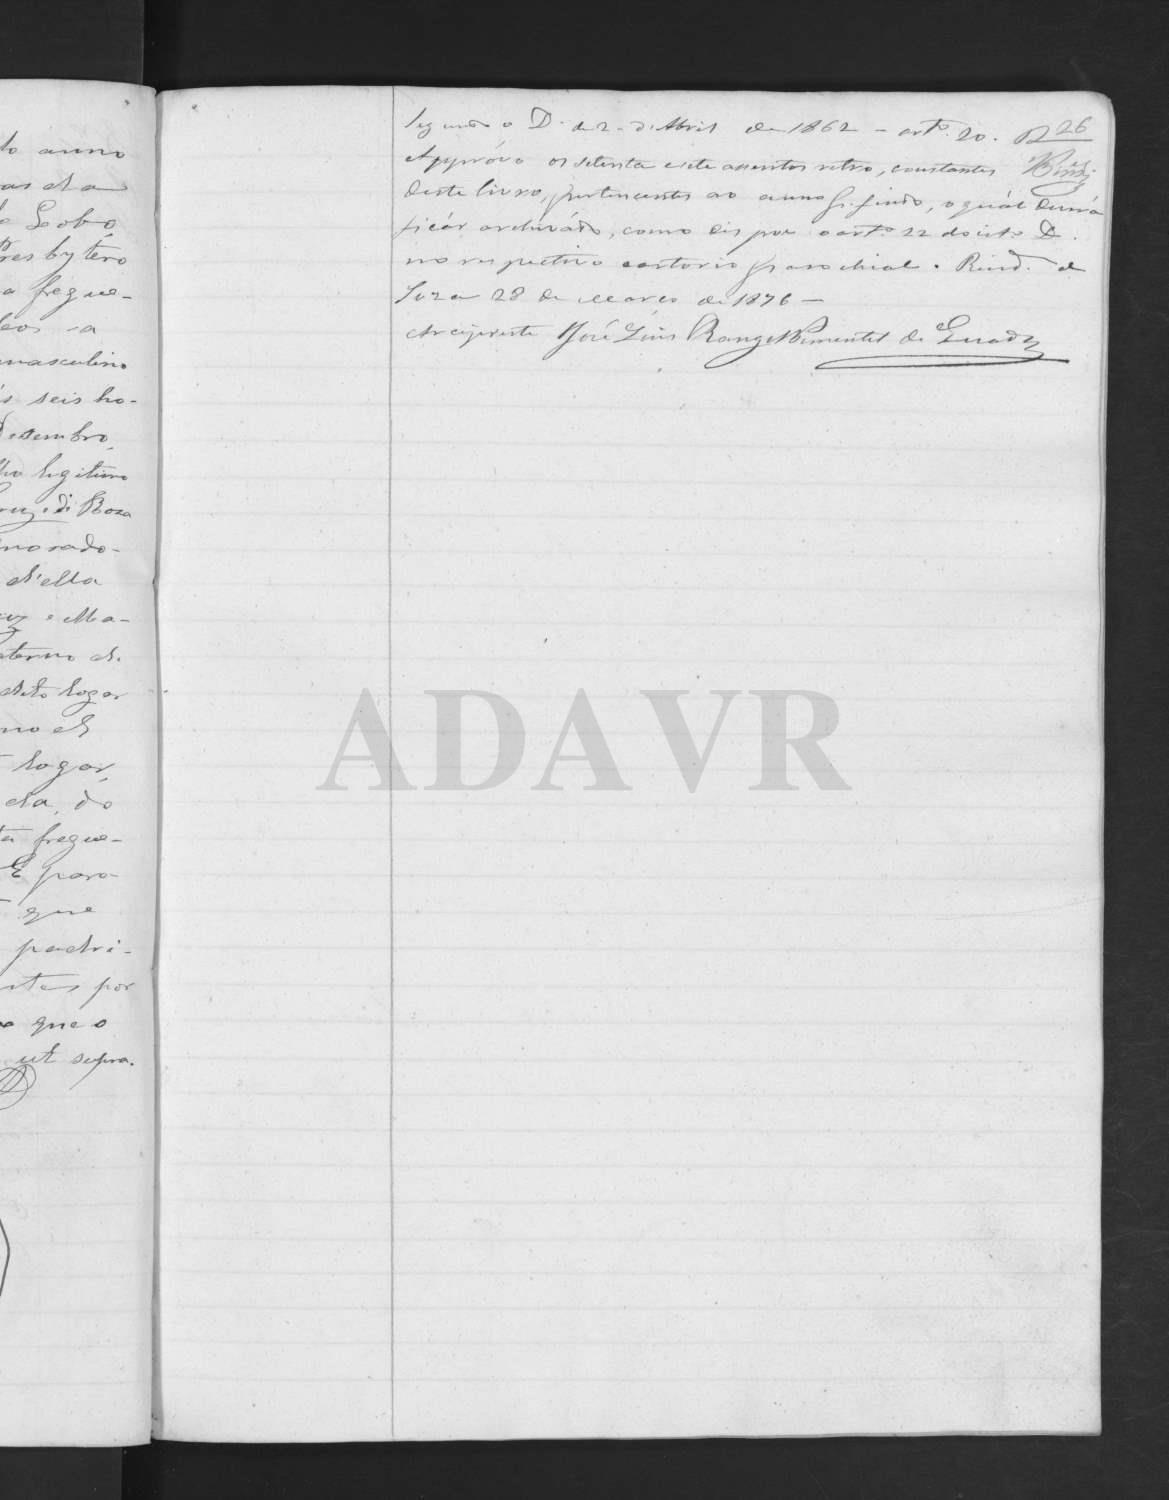 to anno
Lobo,
Presbytero
a fregue-
masculino
s seis ho-
Dezembro,
lho legitimo
Cruz e de Roza
morado-
d'ella
e Ma-
aterno de
dito logar
no de
logar,
da, do
ta fregue-
E para
que
padri-
por
que o
ut supra.
26
Segundo o D. de 2 de Abril de 1862 - artº. 20.
Appróvo os setenta e sete assentos retro, constantes
deste livro, pertencentes ao anno p. findo, o quál deverá
ficár archivádo, como dispoe o artº. 22 do citº. D.
no respectivo cartorio parochial. Resid. de
Soza 28 de Março de 1876 -
Arcipreste José Luis Rangel Pimentel de Quadros
ADAVR